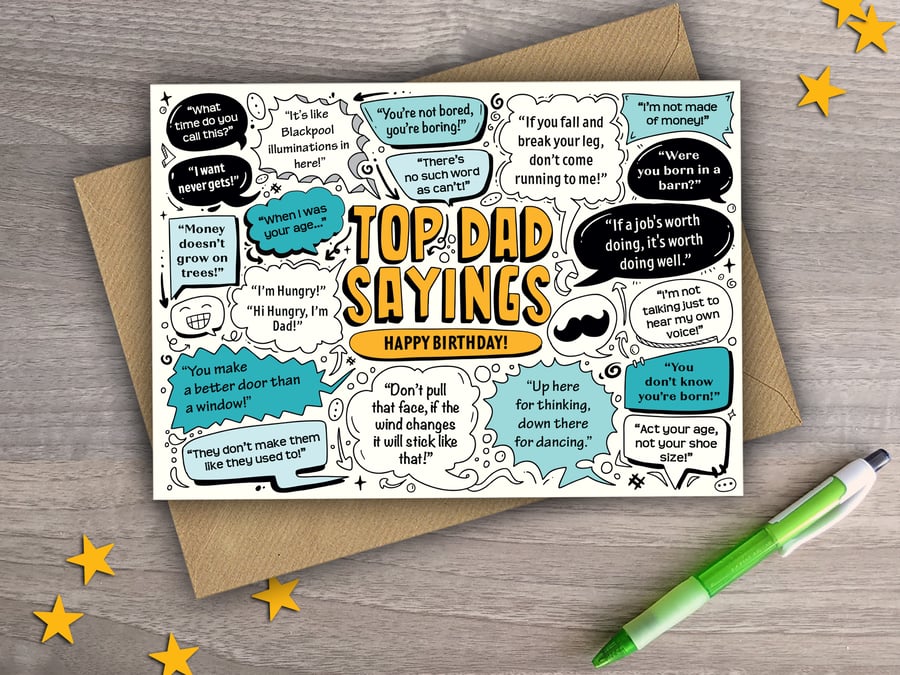 "What
time do you
call this?"
"It's like
Blackpool
illuminations in
here!"
"You're not bored,
you're boring!"
"If you fall and
break your leg,
don't come
running to me!"
"I'm not made
of money!"
"I want
never gets!"
"There's
no such word
as can't!"
"Were
you born in a
barn?"
"Money
doesn't
grow on
trees!"
"When I was
your age..."
TOP DAD
SAYINGS
HAPPY BIRTHDAY!
"If a job's worth
doing, it's worth
doing well."
"I'm Hungry!"
"Hi Hungry, I'm
Dad!"
"I'm not
talking just to
hear my own
voice!"
"You make
a better door than
a window!"
"Don't pull
that face, if the
wind changes
it will stick like
that!"
"Up here
for thinking,
down there
for dancing."
"You
don't know
you're born!"
"They don't make them
like they used to!"
"Act your age,
not your shoe
size!"